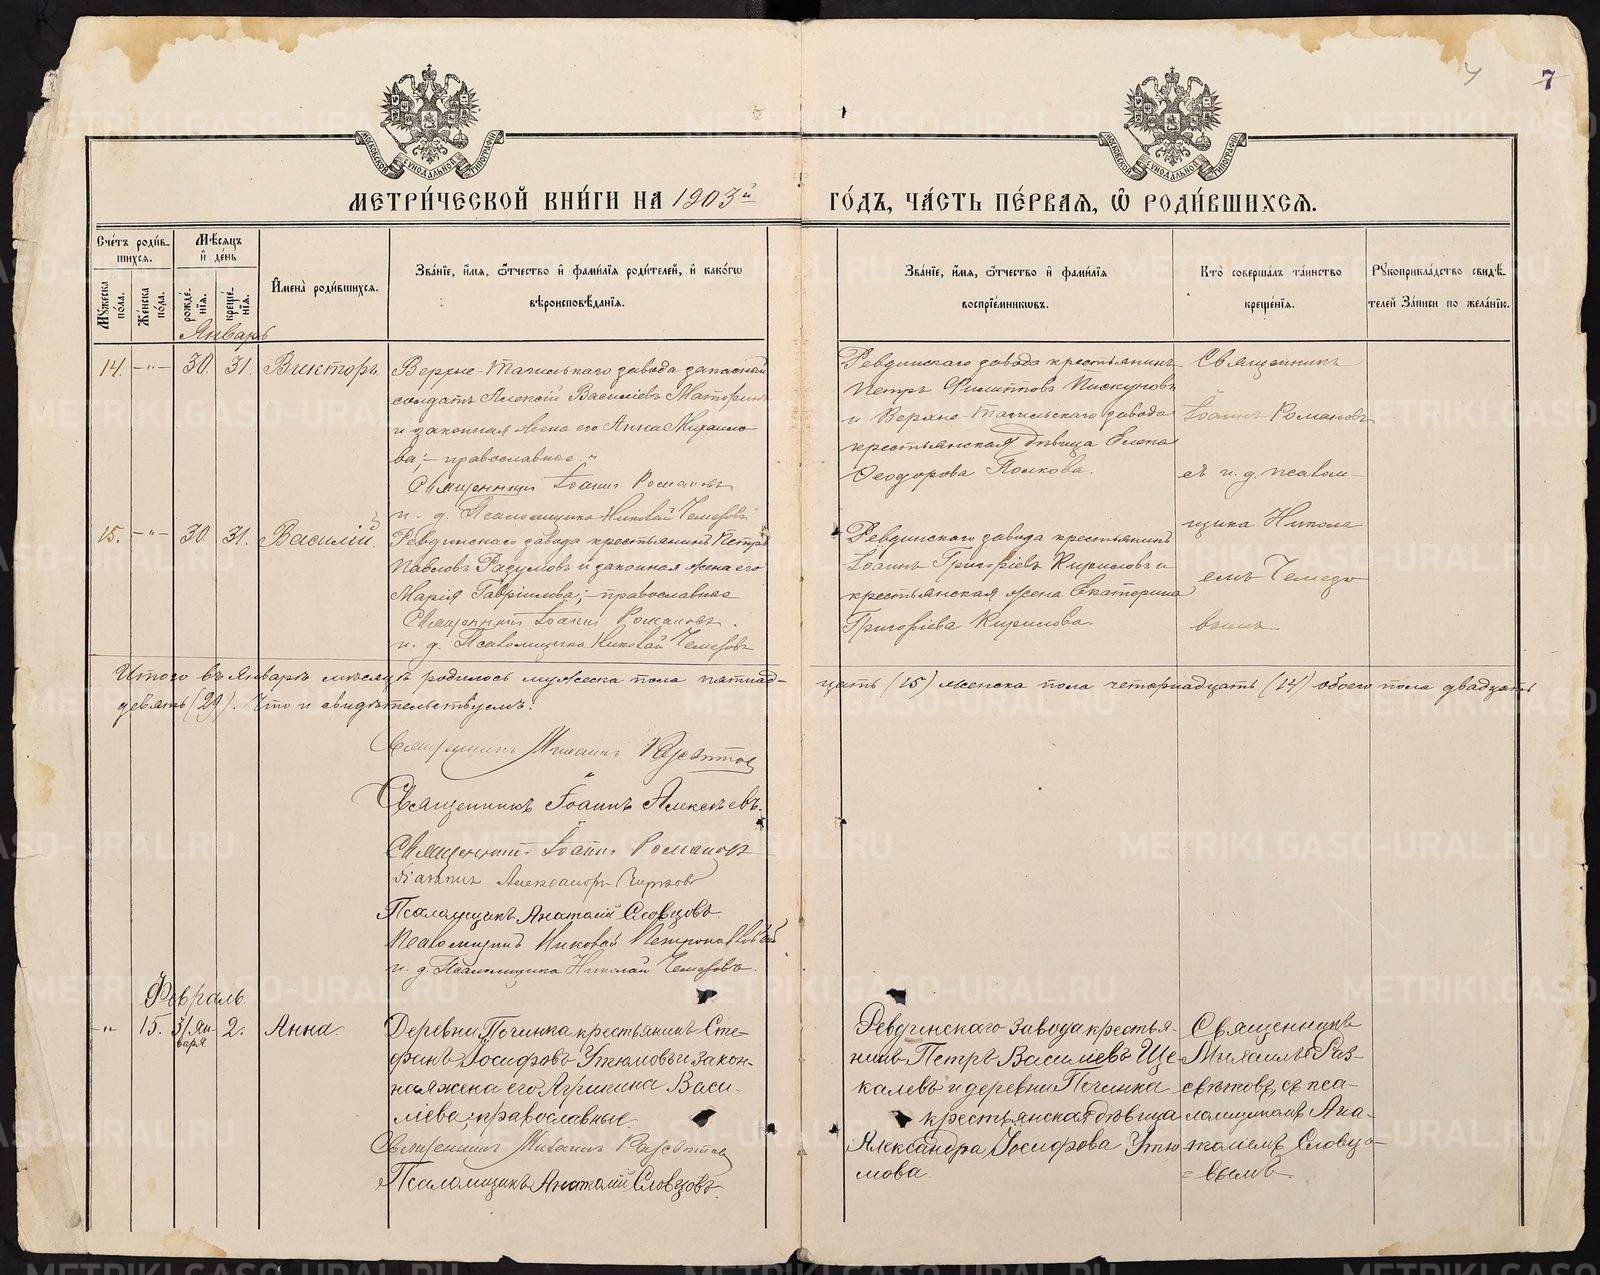 7 7
МОСКОВСКОЙ СѴНОДАЛЬНОЙ ТИПОГРАФІИ
МОСКОВСКОЙ СѴНОДАЛЬНОЙ ТИПОГРАФІИ
МЕТРИ́ЧЕСКОЙ КНИ́ГИ НА 1903й ГО́ДЪ, ЧА́СТЬ ПЕ́РВАЯ, Ѡ҆ РОДИ́ВШИХСЯ.
Сче́тъ роди́вшихся.
Мꙋ́жеска по́ла.
Же́нска по́ла.
Мѣ́сяцъ и҆ де́нь
рожде́нїя.
креще́нїя.
И҆мена̀ роди́вшихся.
Зва́нїе, и҆́мя, ѻ҆́тчество и҆ фами́лїя роди́телей, и҆ како́гѡ
вѣроисповѣ́данїя.
Зва́нїе, и҆́мя, ѻ҆́тчество и҆ фами́лїя
воспрїе́мникѡвъ.
Кто̀ соверша́лъ та́инство
креще́нїя.
Рꙋкоприкла́дство свидѣ́телей за́писи по жела́нїю.
Январь
14. -„- 30. 31. Викторъ.
Верхне-Тагильскаго завода запасный
солдатъ Алексій Василіевъ Маторинъ
и законная жена его Анна Михаило
ва; - православные.
Священникъ Іоаннъ Романовъ
и. д. Псаломщика Николай Чемезовъ
Ревдинскаго завода крестьянинъ
Петръ Филипповъ Пискуновъ
и Верхне-Тагильскаго завода
крестьянская дѣвица Елена
Ѳеодорова Полкова.
Священникъ
Іоаннъ Романовъ
съ и. д. псалом-
щика Никола
емъ Чемезо
вымъ
15. -„- 30. 31. Василій.
Ревдинскаго завода крестьянинъ Петръ
Павловъ Разумовъ и законная жена его
Марія Гавріилова; - православные
Священникъ Іоаннъ Романовъ.
и. д. Псаломщика Николай Чемезовъ
Ревдинскаго завода крестьянинъ
Іоаннъ Григоріевъ Кириловъ и
крестьянская жена Екатерина
Григоріева Кирилова.
Итого въ Январѣ мѣсяцѣ родилось мужеска пола пятнад-цать (15) женска пола четырнадцать (14) обоего пола двадцать
девять (29). Что и свидѣтельствуемъ:
Священникъ Михаилъ Разсвѣтовъ
Священникъ Іоаннъ Алексѣевъ.
Священникъ Іоаннъ Романовъ
Діаконъ Александръ
Псаломщикъ Анатолій Словцовъ.
Псаломщикъ Николай Петропавловскій
и. д. Псаломщика Николай Чемезовъ.
Февраль.
-„- 15. 31/Января 2. Анна
Деревни Починка крестьянинъ Сте-
фанъ Іосифовъ Утюмовъ и закон-
ная жена его Агрипина Васи-
ліева; православные.
Священникъ Михаилъ Разсвѣтовъ
Псаломщикъ Анатолій Словцовъ.
Ревдинскаго завода крестья-
нинъ Петръ Василіевъ Ще-
калевъ и деревни Починка
крестьянская дѣвица
Александра Іосифова Утю
мова.
Священникъ
Михаилъ Раз-
свѣтовъ, съ пса-
ломщикомъ Ана-
толіемъ Словцо-
=вымъ
METRIKI.GASO-URAL.RU